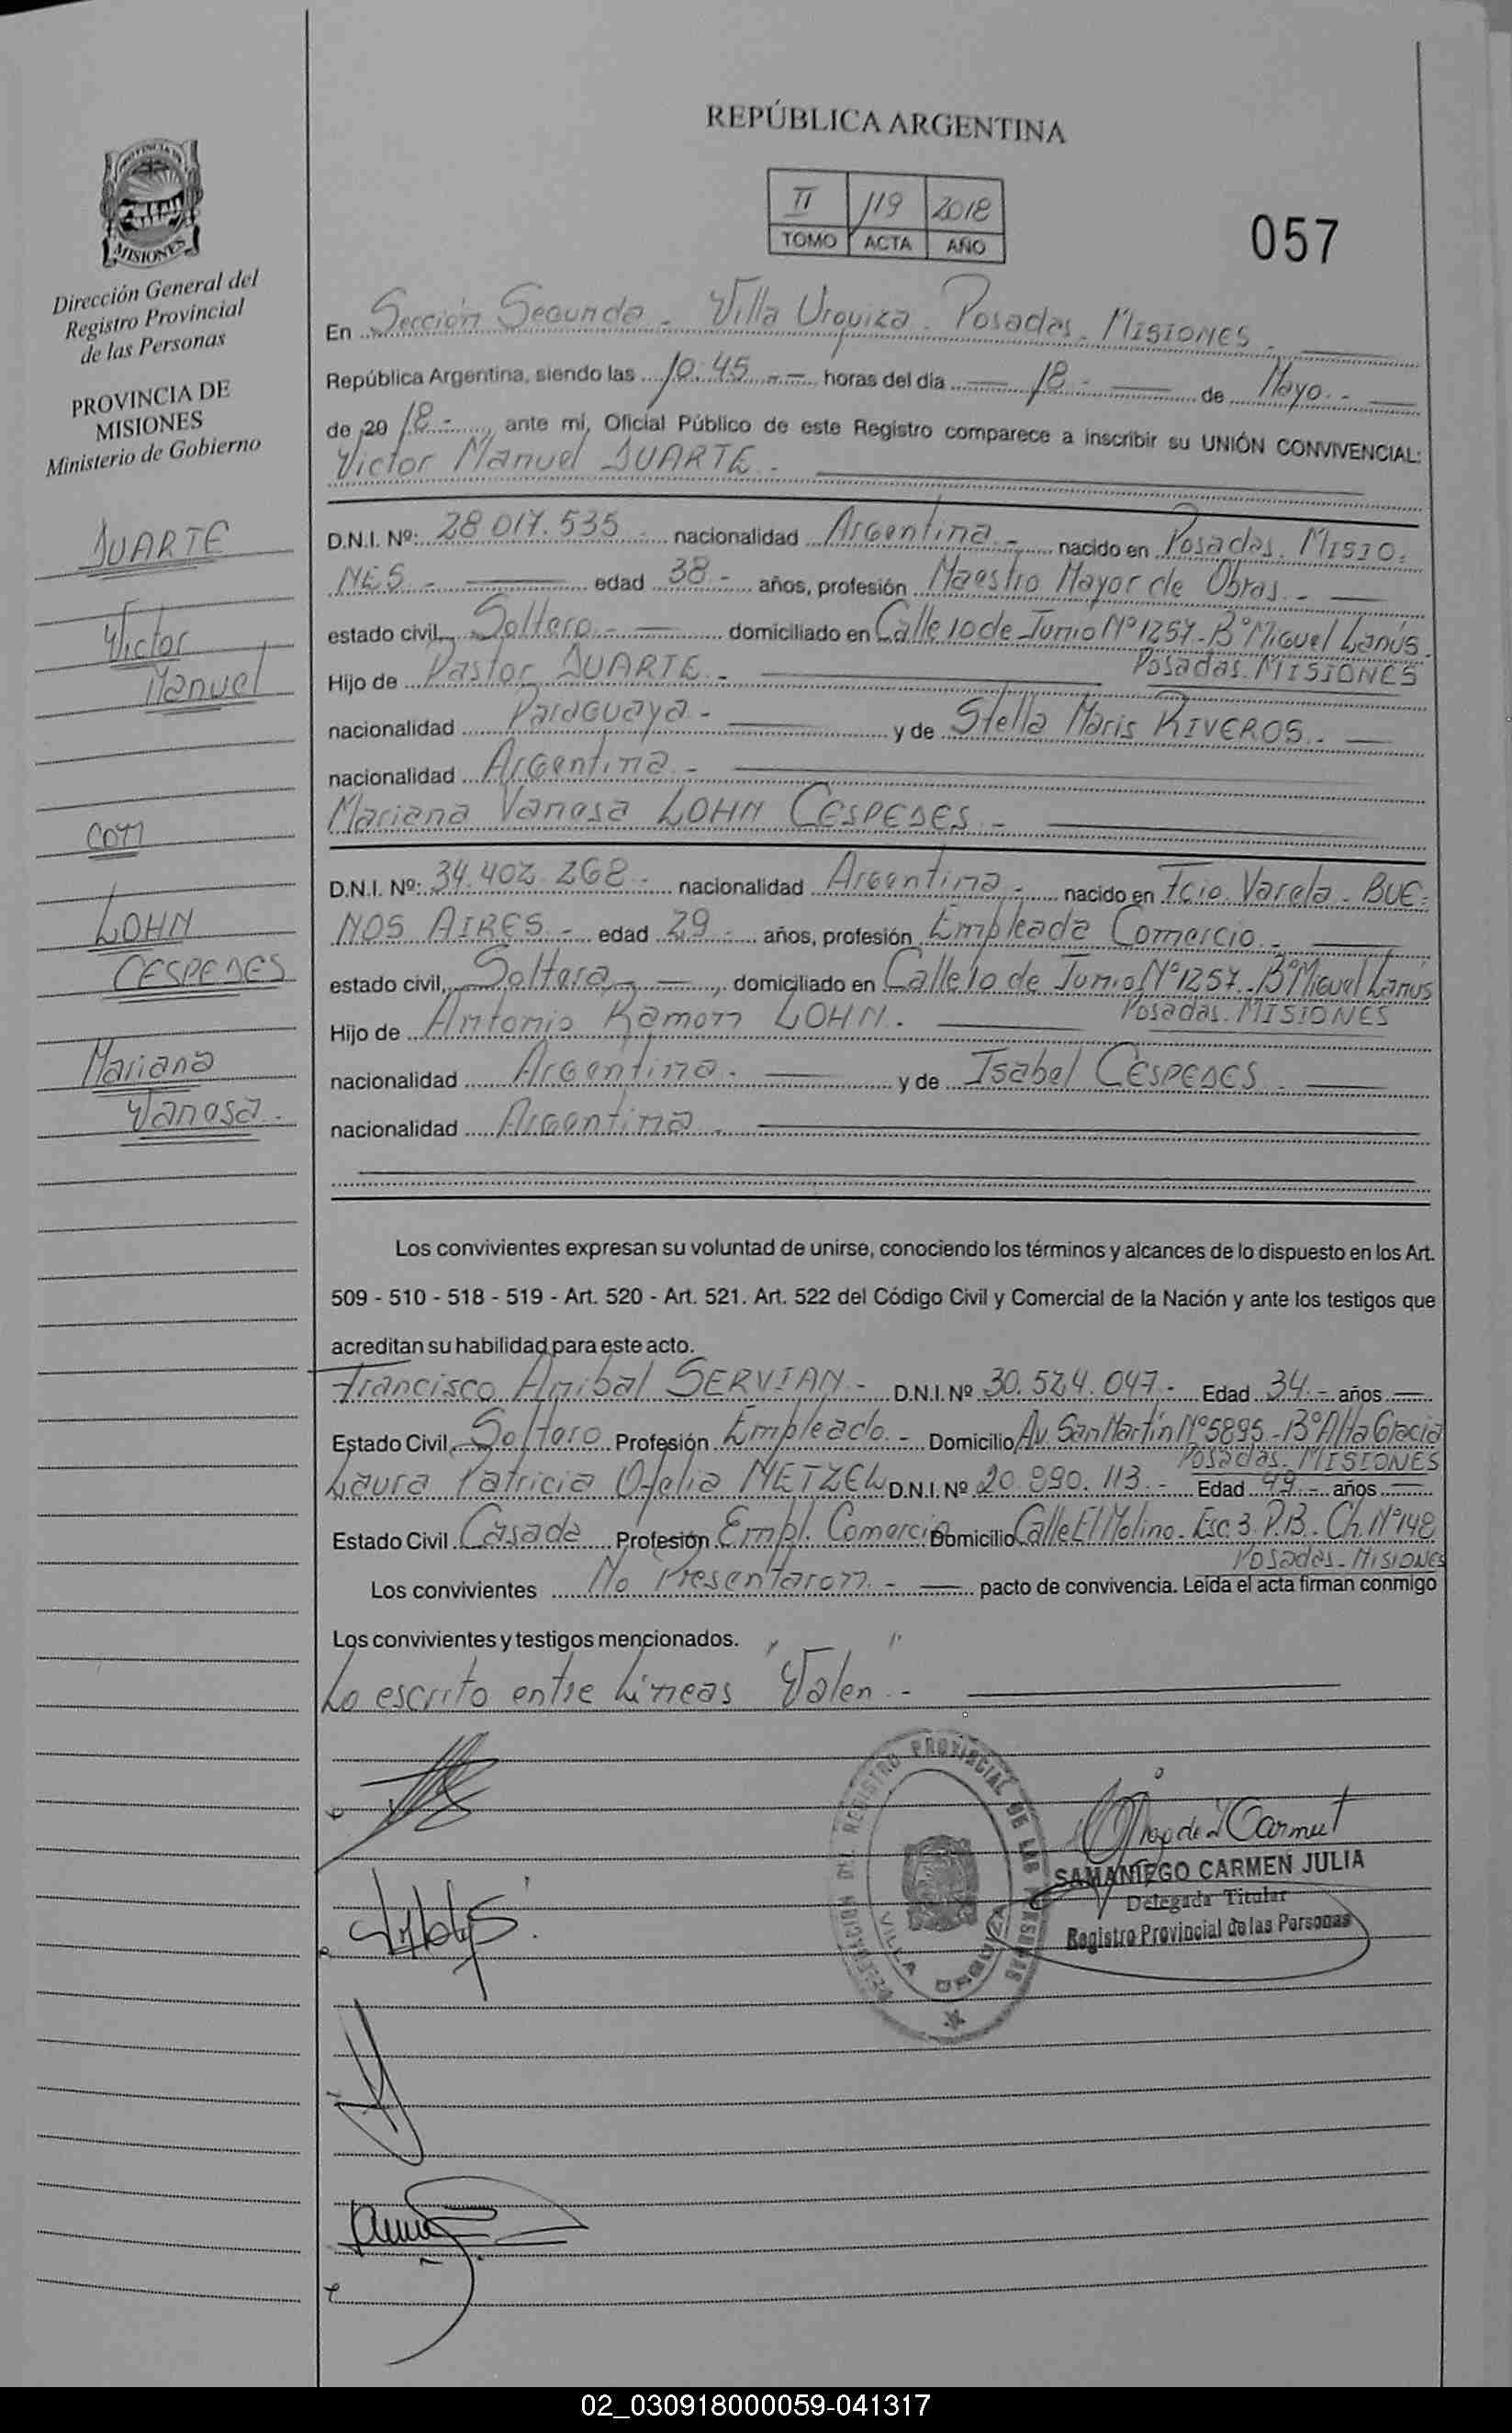 REPÚBLICA ARGENTINA
II 119 2018
TOMO ACTA AÑO
057
PROVINCIA DE
MISIONES
Dirección General del
Registro Provincial
de las Personas
PROVINCIA DE
MISIONES
Ministerio de Gobierno
DUARTE
Victor
Manuel
con
LOHN
CESPEDES
Mariana
Vanesa.-
En Sección Segunda - Villa Urquiza. Posadas. MISIONES -
República Argentina, siendo las 10:45 -- horas del día 18 - de Mayo. -
de 20 18 - , ante mí, Oficial Público de este Registro comparece a inscribir su UNIÓN CONVIVENCIAL:
Victor Manuel DUARTE -
D.N.I. Nº: 28.017.535 - nacionalidad Argentina - nacido en Posadas. MISIO-
NES - edad 38 - años, profesión Maestro Mayor de Obras. -
estado civil, Soltero - domiciliado en Calle 10 de Junio Nº 1257 - Bº Miguel Lanús.
Posadas. MISIONES
Hijo de Pastor DUARTE -
nacionalidad Paraguaya - y de Stella Maris RIVEROS. -
nacionalidad Argentina -
Mariana Vanesa LOHN CESPEDES -
D.N.I. Nº: 34.402.268 - nacionalidad Argentina - nacido en Fcio. Varela - BUE-
NOS AIRES - edad 29 - años, profesión Empleada Comercio -
estado civil, Soltera - , domiciliado en Calle 10 de Junio Nº 1257 - Bº Miguel Lanus
Posadas. MISIONES
Hijo de Antonio Ramon LOHN.
nacionalidad Argentina - y de Isabel CESPEDES -
nacionalidad Argentina -
Los convivientes expresan su voluntad de unirse, conociendo los términos y alcances de lo dispuesto en los Art.
509 - 510 - 518 - 519 - Art. 520 - Art. 521. Art. 522 del Código Civil y Comercial de la Nación y ante los testigos que
acreditan su habilidad para este acto.
Francisco Anibal SERVIAN - D.N.I. Nº 30.524.047 - Edad 34 - años
Estado Civil Soltero Profesión Empleado - Domicilio Av. San Martín Nº 5895 - Bº Alta Gracia
Posadas. MISIONES
Laura Patricia Ofelia METZEL D.N.I. Nº 20.890.113 - Edad 49 - años
Estado Civil Casada Profesión Empl. Comercio Domicilio Calle El Molino - Esc. 3. P.B. Ch. Nº 148
Posadas - MISIONES
Los convivientes No Presentaron - pacto de convivencia. Leída el acta firman conmigo
Los convivientes y testigos mencionados.
Lo escrito entre Líneas "Valen" -
REGISTRO PROVINCIAL DE LAS PERSONAS
VILLA URQUIZA
SAMANIEGO CARMEN JULIA
Delegada Titular
Registro Provincial de las Personas
02_030918000059-041317